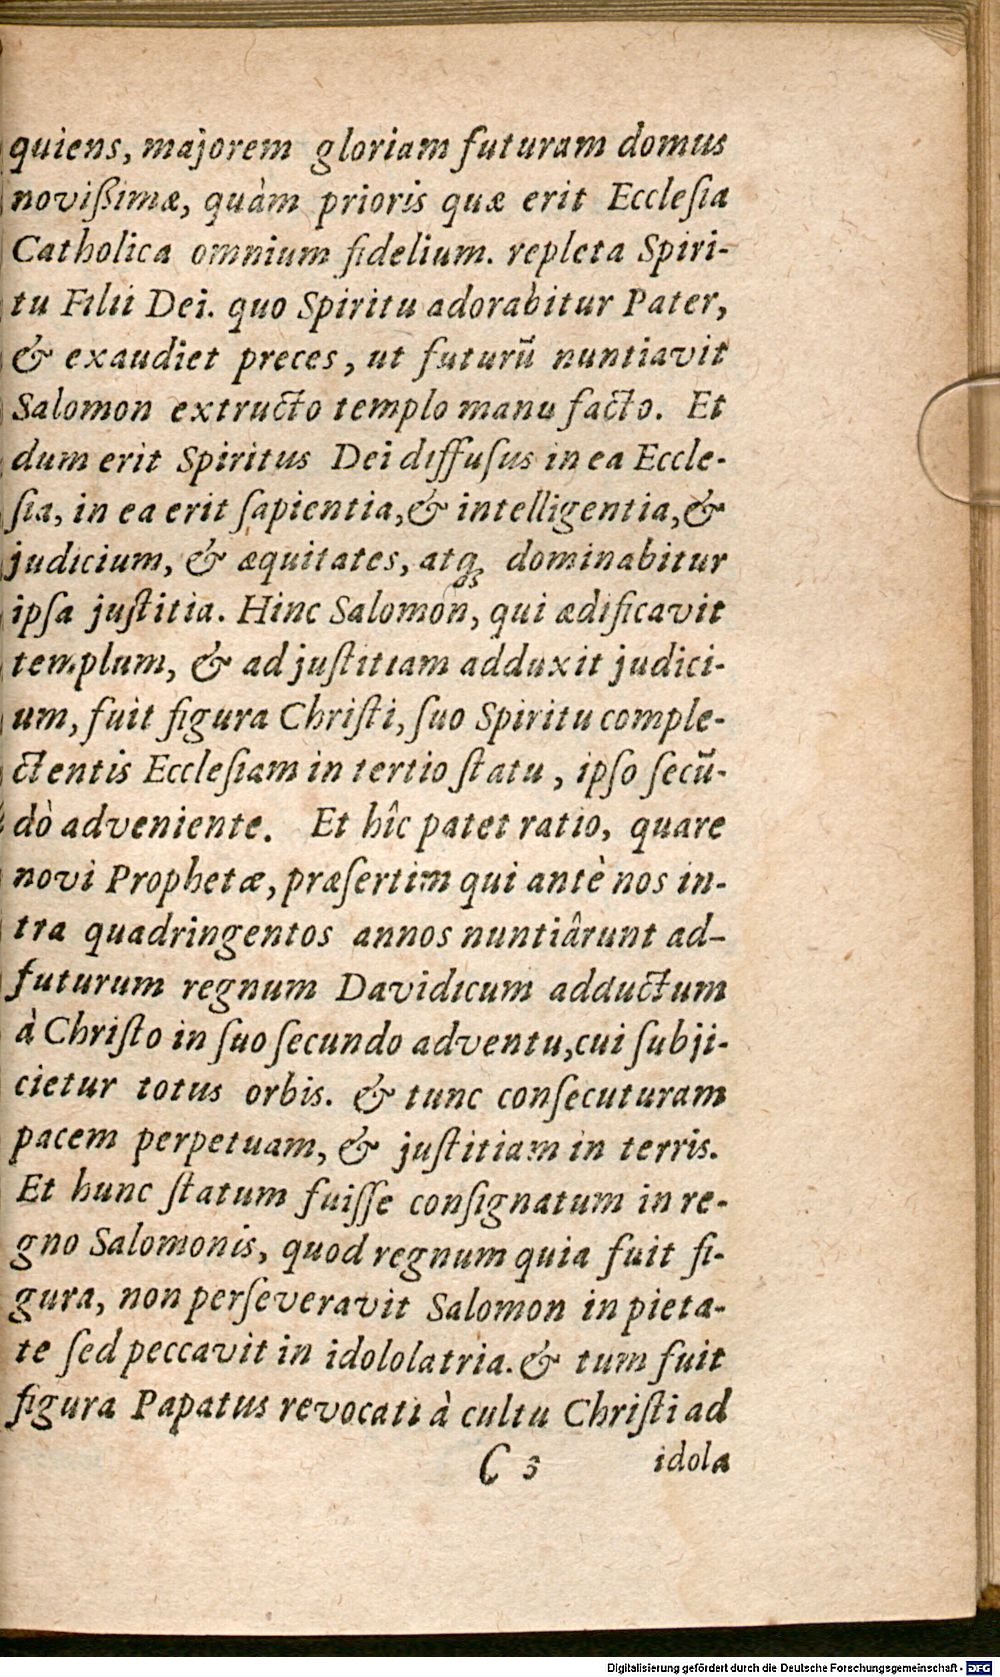 quiens, majorem gloriam futuram domus
novißimæ, quàm prioris quæ erit Eccleſia
Catholica omnium fidelium. repleta Spiri-
tu Filii Dei. quo Spiritu adorabitur Pater,
& exaudiet preces, ut futurũ nuntiavit
Salomon extructo templo manu facto. Et
dum erit Spiritus Dei diffuſus in ea Eccle-
ſia, in ea erit ſapientia, & intelligentia, &
judicium, & æquitates, atq; dominabitur
ipſa juſtitia. Hinc Salomon, qui ædificavit
templum, & ad juſtitiam adduxit judici-
um, fuit figura Chriſti, ſuo Spiritu comple-
ctentis Eccleſiam in tertio ſtatu, ipſo ſecũ-
dò adveniente. Et hîc patet ratio, quare
novi Prophetæ, præſertim qui antè nos in-
tra quadringentos annos nuntiârunt ad-
futurum regnum Davidicum adductum
à Chriſto in ſuo ſecundo adventu, cui ſubji-
cietur totus orbis. & tunc conſecuturam
pacem perpetuam, & juſtitiam in terris.
Et hunc ſtatum fuiſſe conſignatum in re-
gno Salomonis, quod regnum quia fuit fi-
gura, non perſeveravit Salomon in pieta-
te ſed peccavit in idololatria. & tum fuit
figura Papatus revocati à cultu Chriſti ad
C 3 idola
Digitalisierung gefördert durch die Deutsche Forschungsgemeinschaft - DFG